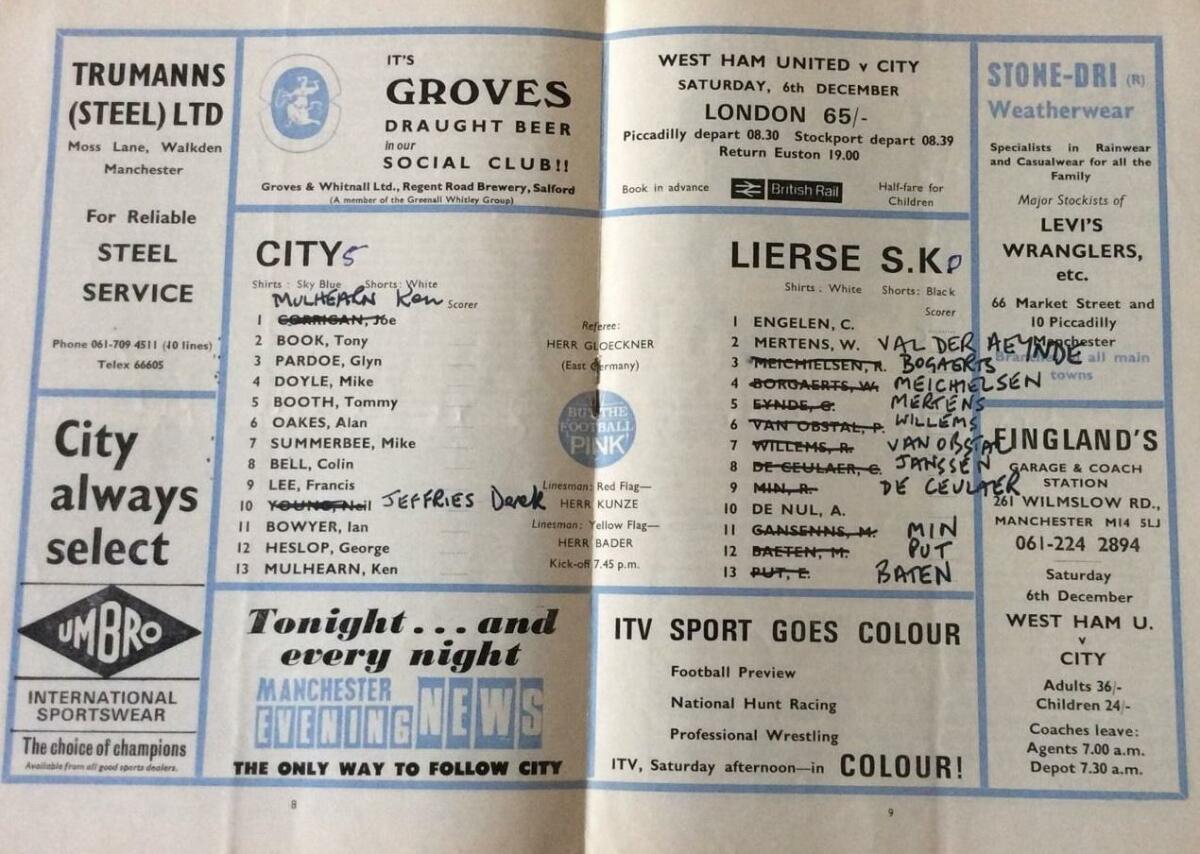 TRUMANNS
(STEEL) LTD
Moss Lane, Walkden
Manchester
For Reliable
STEEL
SERVICE
Phone 061-709 4511 (40 lines)
Telex 66605
IT'S
GROVES
DRAUGHT BEER
in our
SOCIAL CLUB!!
Groves & Whitnall Ltd., Regent Road Brewery, Salford
(A member of the Greenall Whitley Group)
WEST HAM UNITED v CITY
SATURDAY, 6th DECEMBER
LONDON 65/-
Piccadilly depart 08.30 Stockport depart 08.39
Return Euston 19.00
Book in advance
British Rail
Half-fare for
Children
STONE-DRI (R)
Weatherwear
Specialists in Rainwear
and Casualwear for all the
Family
Major Stockists of
LEVI'S
WRANGLERS,
etc.
66 Market Street and
10 Piccadilly
Manchester
Branches all main
towns
CITY 5
Shirts : Sky Blue Shorts: White
MULHEARN Ken Scorer
1 CORRIGAN, Joe
2 BOOK, Tony
3 PARDOE, Glyn
4 DOYLE, Mike
5 BOOTH, Tommy
6 OAKES, Alan
7 SUMMERBEE, Mike
8 BELL, Colin
9 LEE, Francis
10 YOUNG, Neil JEFFRIES Derek
11 BOWYER, Ian
12 HESLOP, George
13 MULHEARN, Ken
Referee:
HERR GLOECKNER
(East Germany)
BUY THE
FOOTBALL
PINK
Linesman: Red Flag—
HERR KUNZE
Linesman: Yellow Flag—
HERR BADER
Kick-off 7.45 p.m.
LIERSE S.K. 0
Shirts : White Shorts: Black
Scorer
1 ENGELEN, C.
2 MERTENS, W. VAL DER AEYNDE
3 MEICHIELSEN, R. BOGAERTS
4 BORGAERTS, W. MEICHIELSEN
5 EYNDE, G. MERTENS
6 VAN OBSTAL, P. WILLEMS
7 WILLEMS, R. VAN OBSTAL
8 DE CEULAER, C. JANSSEN
9 MIN, R. DE CEULAER
10 DE NUL, A.
11 GANSENNS, M. MIN
12 BAETEN, M. PUT
13 PUT, E. BATEN
City
always
select
UMBRO
INTERNATIONAL
SPORTSWEAR
The choice of champions
Available from all good sports dealers.
Tonight . . . and
every night
MANCHESTER
EVENING NEWS
THE ONLY WAY TO FOLLOW CITY
ITV SPORT GOES COLOUR
Football Preview
National Hunt Racing
Professional Wrestling
ITV, Saturday afternoon—in COLOUR!
FINGLAND'S
GARAGE & COACH
STATION
261 WILMSLOW RD.,
MANCHESTER M14 5LJ
061-224 2894
Saturday
6th December
WEST HAM U.
v
CITY
Adults 36/-
Children 24/-
Coaches leave:
Agents 7.00 a.m.
Depot 7.30 a.m.
8
9